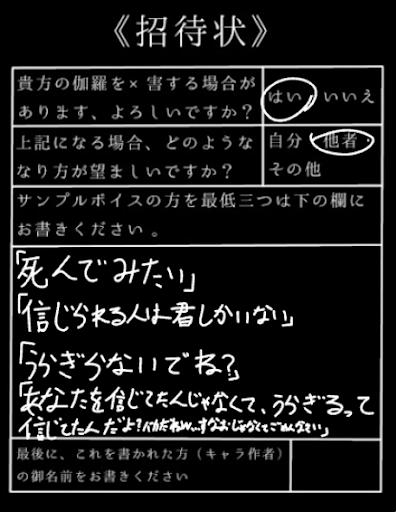 《招待状》
貴方の伽羅を×害する場合が
あります、よろしいですか？
はい いいえ
上記になる場合、どのような
なり方が望ましいですか？
自分 他者
その他
サンプルボイスの方を最低三つは下の欄に
お書きください。
「死んでみたい」
「信じられる人は君しかいない」
「うらぎらないでね？」
「あなたを信じてたんじゃなくて、うらぎるって
信じてたんだよ？バカだねｗ、すなおじゃなくてごめんなさい」
最後に、これを書かれた方（キャラ作者）
の御名前をお書きください